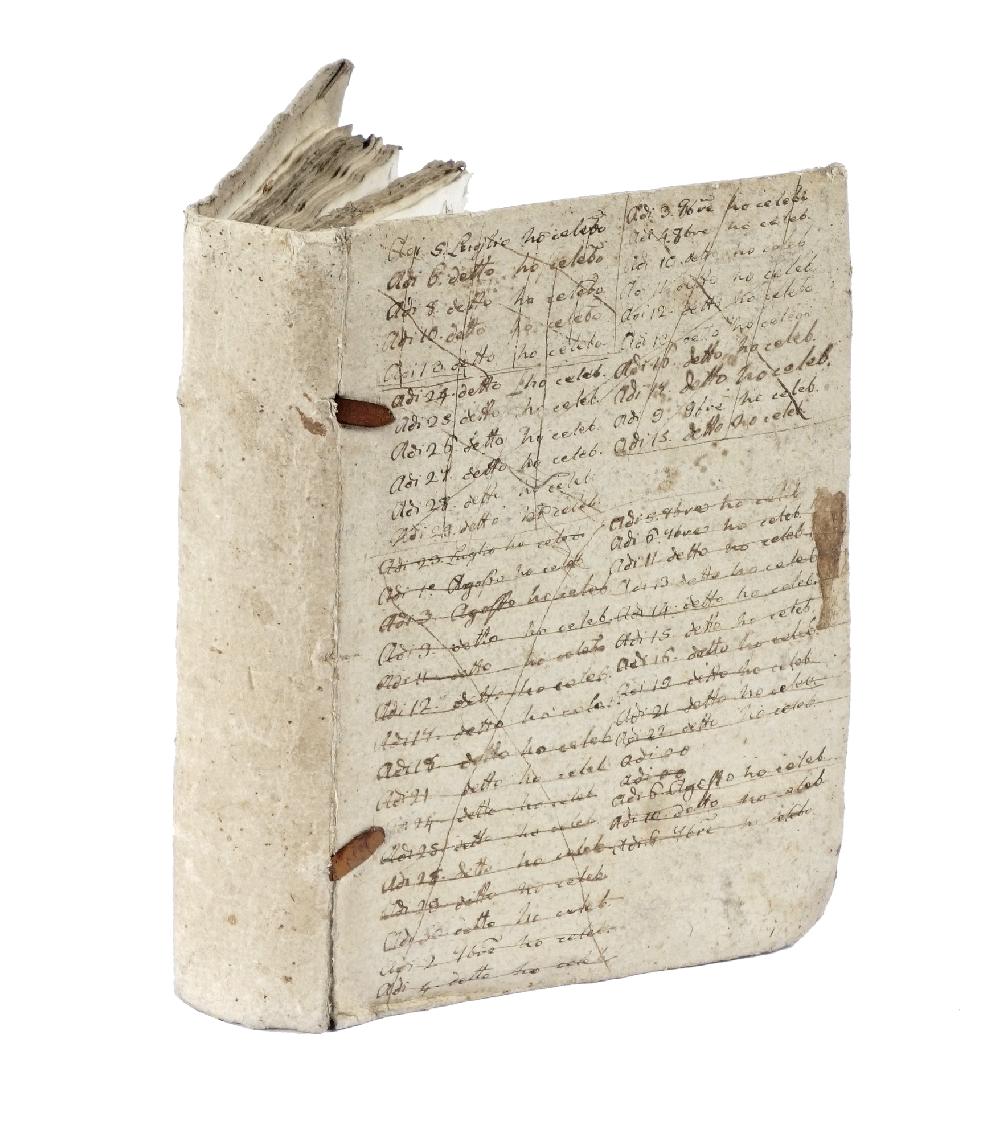 Adi 5. Luglio ho celebo
Adi 6. detto ho celebo
Adi 8. detto ho celebo
Adi 10. detto ho celebo
Adi 13. detto ho celebo
Adi 24. detto ho celeb.
Adi 25 detto ho celeb.
Adi 26 detto ho celeb.
Adi 27. detto ho celeb.
Adi 28. detto ho celeb.
Adi 29. detto ho celeb
Adi 29 Luglio ho celeb
Adi 1º Agosto ho celeb
Adi 3 Agosto ho celeb
Adi 9. detto ho celeb.
Adi 11 detto ho celeb
Adi 12. detto ho celeb.
Adi 17. detto ho celeb.
Adi 18. detto ho celeb
Adi 21 detto ho celeb
detto ho celeb
Adi 25 detto ho celeb
Adi 28. detto ho celeb
Adi 29 detto ho celeb
Adi detto ho celeb
Adi 2 7bre ho celeb.
Adi 4 detto ho celeb
Adi 3. 7bre ho celeb
Adi 4. 7bre ho celeb.
Adi 10. detto ho celeb
detto ho celeb.
Adi 12. detto ho celebo
Adi detto ho celeb
Adi 16. detto ho celeb.
Adi 17. detto ho celeb.
Adi 9. 8bre ho celeb.
Adi 15. detto ho celeb.
Adi 5. 7bre ho celeb
Adi 6. 7bre ho celeb.
Adi 11 detto ho celeb
Adi 13 detto ho celeb
Adi 14. detto ho celeb.
Adi 15. detto ho celeb.
Adi 16. detto ho celeb.
Adi 19 detto ho celeb
Adi 21 detto ho celeb
Adi 22 detto ho celeb
Adi 00
Adi 00
Adi 6 Agosto ho celeb
Adi 10 detto ho celeb
Adi 6 7bre ho celebo